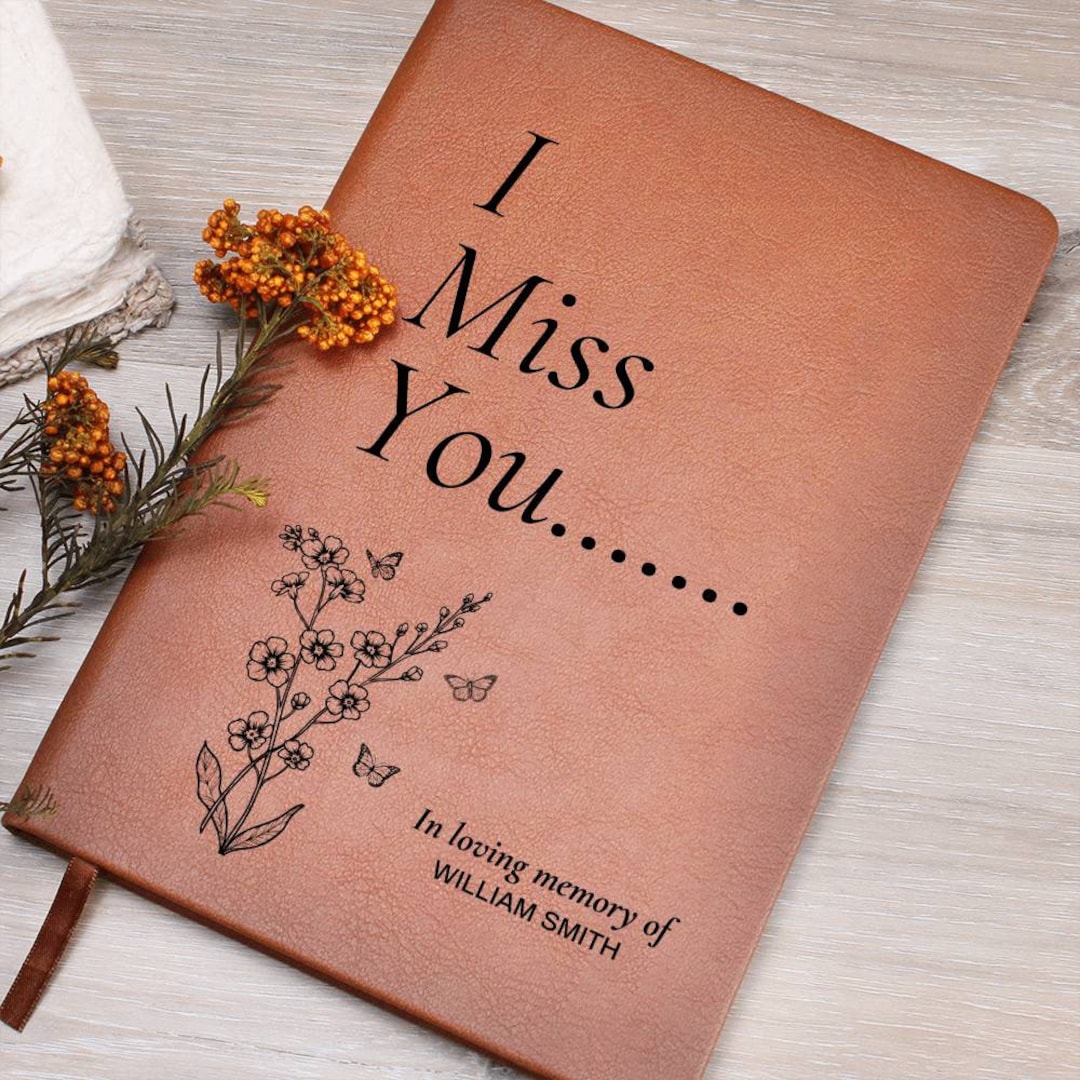 I
Miss
You.......
In loving memory of
WILLIAM SMITH